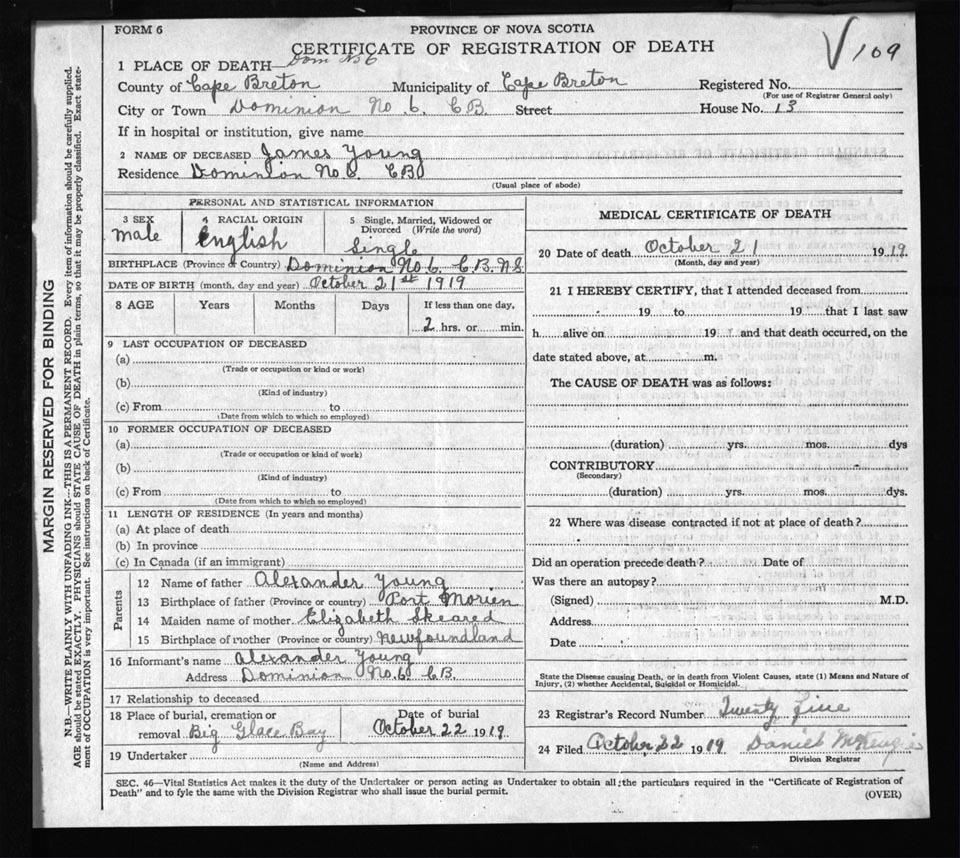 FORM 6
PROVINCE OF NOVA SCOTIA
CERTIFICATE OF REGISTRATION OF DEATH
√109
1 PLACE OF DEATH—Dom No 6
County of Cape Breton Municipality of Cape Breton Registered No.
(For use of Registrar General only)
City or Town Dominion No. 6. C B. Street House No. 13
If in hospital or institution, give name
2 NAME OF DECEASED James Young
Residence Dominion No 6. CB
(Usual place of abode)
PERSONAL AND STATISTICAL INFORMATION
3 SEX male
4 RACIAL ORIGIN English
5 Single, Married, Widowed or Divorced (Write the word) Single
BIRTHPLACE (Province or Country) Dominion No 6. C.B. N.S.
DATE OF BIRTH (month, day and year) October 21st 1919
8 AGE Years Months Days If less than one day,
2 hrs. or min.
9 LAST OCCUPATION OF DECEASED
(a)
(Trade or occupation or kind or work)
(b)
(Kind of industry)
(c) From to
(Date from which to which so employed)
10 FORMER OCCUPATION OF DECEASED
(a)
(Trade or occupation or kind of work)
(b)
(Kind of industry)
(c) From to
(Date from which to which so employed)
11 LENGTH OF RESIDENCE (In years and months)
(a) At place of death
(b) In province
(c) In Canada (if an immigrant)
Parents
12 Name of father Alexander Young
13 Birthplace of father (Province or country) Port Morien
14 Maiden name of mother. Elizabeth Skeared
15 Birthplace of mother (Province or country) Newfoundland
16 Informant's name Alexander Young
Address Dominion No. 6 C B.
17 Relationship to deceased
18 Place of burial, cremation or removal Big Glace Bay Date of burial October 22 1919
19 Undertaker
(Name and Address)
MEDICAL CERTIFICATE OF DEATH
20 Date of death October 21 1919
(Month, day and year)
21 I HEREBY CERTIFY, that I attended deceased from
19 to 19 that I last saw
h alive on 19 and that death occurred, on the
date stated above, at m.
The CAUSE OF DEATH was as follows:
(duration) yrs. mos. dys
CONTRIBUTORY
(Secondary)
(duration) yrs. mos. dys.
22 Where was disease contracted if not at place of death?
Did an operation precede death? Date of
Was there an autopsy?
(Signed) M.D.
Address
Date
State the Disease causing Death, or in death from Violent Causes, state (1) Means and Nature of
Injury, (2) whether Accidental, Suicidal or Homicidal.
23 Registrar's Record Number Twenty
24 Filed October 22 1919 Daniel McKenzie
Division Registrar
SEC. 46—Vital Statistics Act makes it the duty of the Undertaker or person acting as Undertaker to obtain all the particulars required in the "Certificate of Registration of
Death" and to fyle the same with the Division Registrar who shall issue the burial permit.
(OVER)
MARGIN RESERVED FOR BINDING
N.B.—WRITE PLAINLY WITH UNFADING INK—THIS IS A PERMANENT RECORD. Every item of information should be carefully supplied.
AGE should be stated EXACTLY. PHYSICIANS should STATE CAUSE OF DEATH in plain terms, so that it may be properly classified. Exact state-
ment of OCCUPATION is very important. See instructions on back of Certificate.